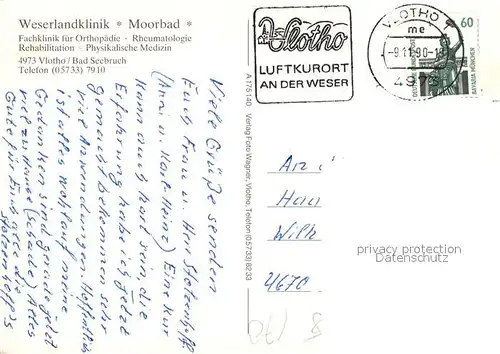 Weserlandklinik * Moorbad *
Fachklinik für Orthopädie · Rheumatologie
Rehabilitation · Physikalische Medizin
4973 Vlotho / Bad Seebruch
Telefon (05733) 7910
Viele Grüße senden
Euch Frau u. Herr Stolzenhoff.
(Anni u. Karl-Heinz) Eine Kur
kann auch hart sein, die
Erfahrung habe ich jetzt
gemacht, bekommen sehr
viele Anwendungen. Hoffentlich
ist alles wohlauf, meine
Gedanken sind gerade jetzt
viel zu Hause (schade) Alles
Gute für Euch alle die
Stolzenhoff's
A 175 140 Verlag Foto Wagner, Vlotho, Telefon (057 33) 82 33
Vlotho
LUFTKURORT
AN DER WESER
VLOTHO
me
-9.11.90-
4973
60
DEUTSCHE BUNDESPOST
BAVARIA MÜNCHEN
Wilh
4670
privacy protection
Datenschutz